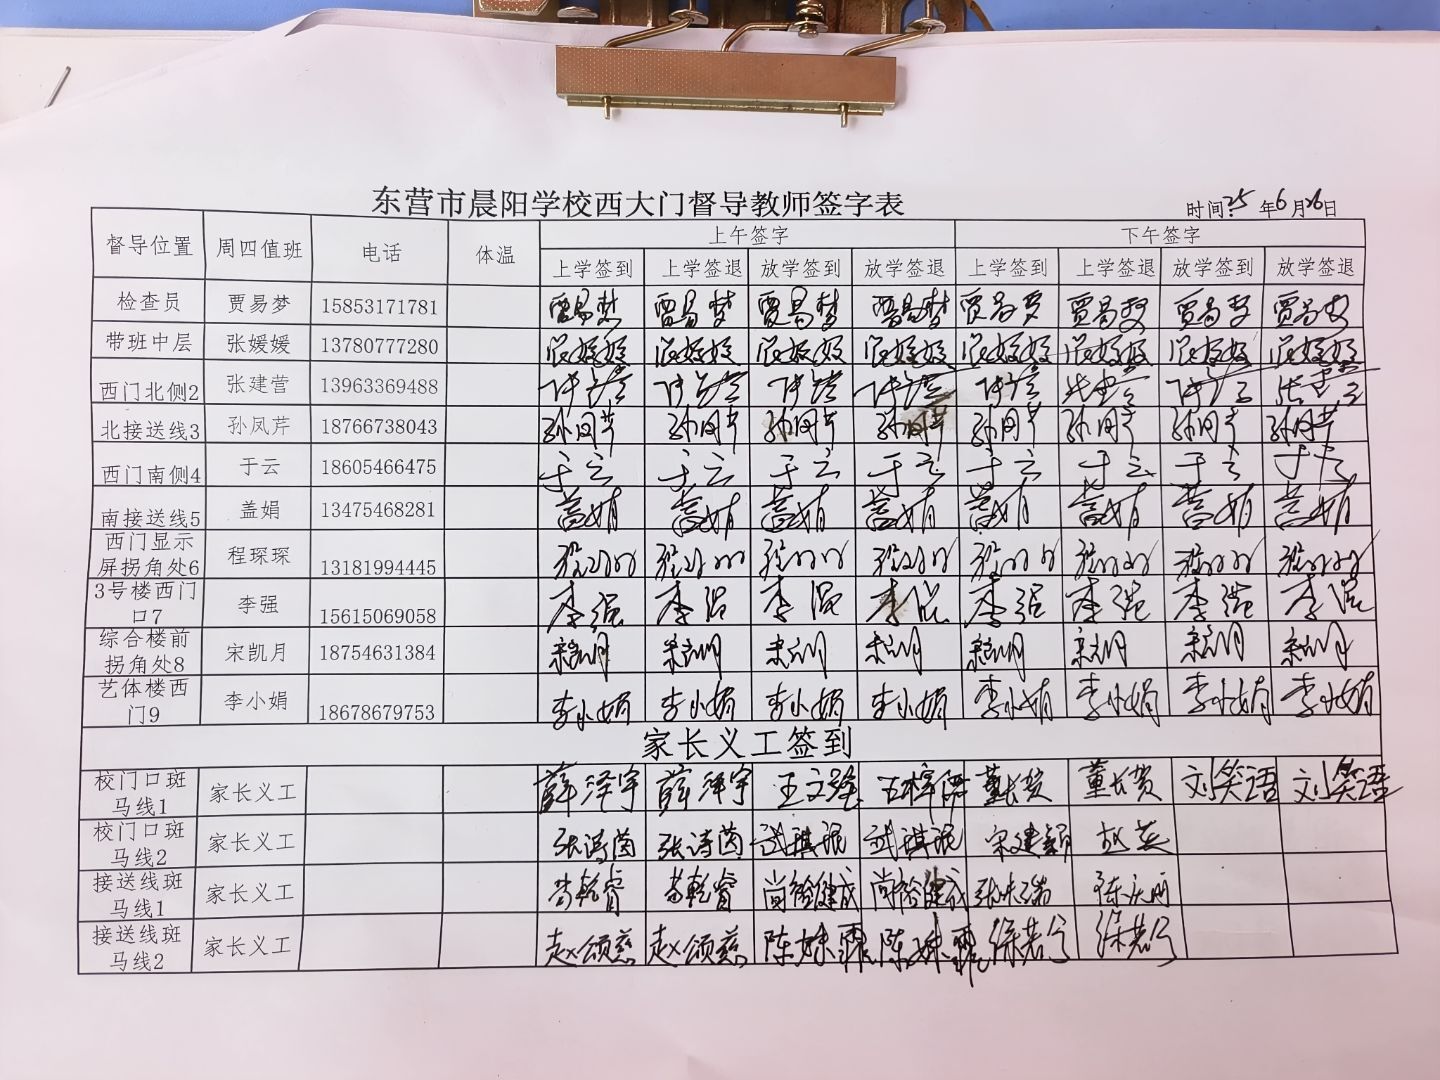 东营市晨阳学校西大门督导教师签字表
时间:25年6月26日
督导位置 周四值班 电话 体温 上午签字 下午签字
上学签到 上学签退 放学签到 放学签退 上学签到 上学签退 放学签到 放学签退
检查员 贾易梦 15853171781 贾易梦 贾易梦 贾易梦 贾易梦 贾易梦 贾易梦 贾易梦 贾易梦
带班中层 张媛媛 13780777280 张媛媛 张媛媛 张媛媛 张媛媛 张媛媛 张媛媛 张媛媛 张媛媛
西门北侧2 张建营 13963369488
北接送线3 孙凤芹 18766738043 孙凤芹 孙凤芹 孙凤芹 孙凤芹 孙凤芹 孙凤芹 孙凤芹 孙凤芹
西门南侧4 于云 18605466475 于云 于云 于云 于云 于云 于云 于云 于云
南接送线5 盖娟 13475468281 盖娟 盖娟 盖娟 盖娟 盖娟 盖娟 盖娟 盖娟
西门显示
屏拐角处6 程琛琛 13181994445
3号楼西门
口7 李强 15615069058 李强 李强 李强 李强 李强 李强 李强 李强
综合楼前
拐角处8 宋凯月 18754631384 宋凯月 宋凯月 宋凯月 宋凯月 宋凯月 宋凯月 宋凯月 宋凯月
艺体楼西
门9 李小娟 18678679753 李小娟 李小娟 李小娟 李小娟 李小娟 李小娟 李小娟 李小娟
家长义工签到
校门口斑
马线1 家长义工 薛泽宇 薛泽宇 王文强 董长贺 董长贺 刘笑语 刘笑语
校门口斑
马线2 家长义工 张诗茵 张诗茵 武琪琨 武琪琨 宋建颖 赵英
接送线斑
马线1 家长义工 苗乾睿 苗乾睿 尚裕健成 尚裕健成 陈庆丽
接送线斑
马线2 家长义工 赵颂慈 赵颂慈 陈姝霏 陈姝霏 徐若兮 徐若兮